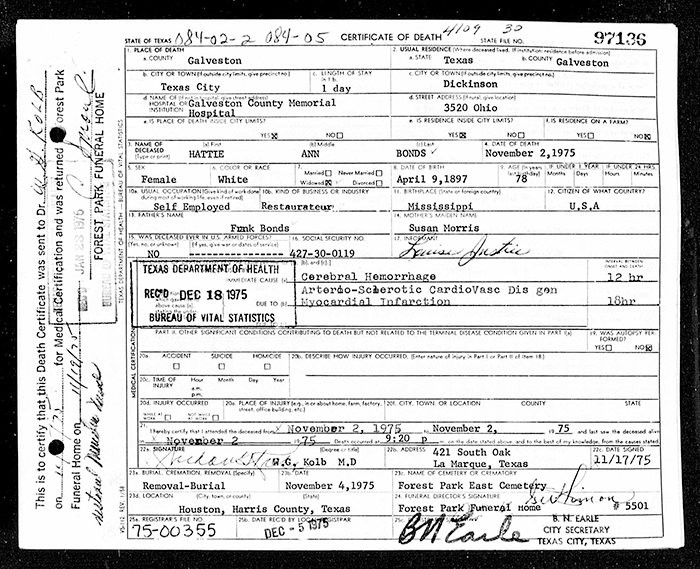 STATE OF TEXAS 084-02-2 084-05 CERTIFICATE OF DEATH 4109 30 STATE FILE NO. 97136
1. PLACE OF DEATH
a. COUNTY Galveston
2. USUAL RESIDENCE (Where deceased lived. If institution: residence before admission)
a. STATE Texas b. COUNTY Galveston
b. CITY OR TOWN (If outside city limits, give precinct no.) Texas City
c. LENGTH OF STAY in 1 b. 1 day
c. CITY OR TOWN (If outside city limits, give precinct no.) Dickinson
d. NAME OF (If not in hospital, give street address) HOSPITAL OR INSTITUTION Galveston County Memorial Hospital
d. STREET ADDRESS (If rural, give location) 3520 Ohio
e. IS PLACE OF DEATH INSIDE CITY LIMITS? YES NO
e. IS RESIDENCE INSIDE CITY LIMITS? YES NO
f. IS RESIDENCE ON A FARM? YES NO
3. NAME OF DECEASED (Type or print) (a) First HATTIE (b) Middle ANN (c) Last BONDS
4. DATE OF DEATH November 2,1975
5. SEX Female
6. COLOR OR RACE White
7. Married Never Married Widowed Divorced
8. DATE OF BIRTH April 9,1897
9. AGE (In years last birthday) 78
IF UNDER 1 YEAR Months Days
IF UNDER 24 HRS. Hours Minutes
10a. USUAL OCCUPATION (Give kind of work done during most of working life, even if retired) Self Employed
10b. KIND OF BUSINESS OR INDUSTRY Restaurateur
11. BIRTHPLACE (State or foreign country) Mississippi
12. CITIZEN OF WHAT COUNTRY? U.S.A
13. FATHER'S NAME Frank Bonds
14. MOTHER'S MAIDEN NAME Susan Morris
15. WAS DECEASED EVER IN U.S. ARMED FORCES? (Yes, no, or unknown) NO (If yes, give war or dates of service)
16. SOCIAL SECURITY NO. 427-30-0119
17. INFORMANT Louise Justice
TEXAS DEPARTMENT OF HEALTH
REC'D DEC 18 1975
BUREAU OF VITAL STATISTICS
IMMEDIATE CAUSE (a) Cerebral Hemorrhage
INTERVAL BETWEEN ONSET AND DEATH 12 hr
Arterio-Sclerotic CardioVasc Dis gen
DUE TO Myocardial Infarction 18hr
PART II. OTHER SIGNIFICANT CONDITIONS CONTRIBUTING TO DEATH BUT NOT RELATED TO THE TERMINAL DISEASE CONDITION GIVEN IN PART I(a)
19. WAS AUTOPSY PERFORMED? YES NO
MEDICAL CERTIFICATION
20a. ACCIDENT SUICIDE HOMICIDE
20b. DESCRIBE HOW INJURY OCCURRED. (Enter nature of injury in Part I or Part II of item 18.)
20c. TIME OF INJURY Hour Month Day Year a.m. p.m.
20d. INJURY OCCURRED WHILE AT WORK NOT WHILE AT WORK
20e. PLACE OF INJURY (e.g., in or about home, farm, factory, street, office building, etc.)
20f. CITY, TOWN, OR LOCATION COUNTY STATE
21. I hereby certify that I attended the deceased from November 2, 1975 to November 2, 19 75 and last saw the deceased alive
November 2 19 75 Death occurred at 9:20 p on the date stated above, and to the best of my knowledge, from the causes stated.
22a. SIGNATURE (Degree or title) W.G, Kolb M.D
22b. ADDRESS 421 South Oak La Marque, Texas
22c. DATE SIGNED 11/17/75
23a. BURIAL, CREMATION, REMOVAL (Specify) Removal-Burial
23b. DATE November 4,1975
23c. NAME OF CEMETERY OR CREMATORY Forest Park East Cemetery
23d. LOCATION (City, town, or county) (State) Houston, Harris County, Texas
24. FUNERAL DIRECTOR'S SIGNATURE Forest Park Funeral Home # 5501
25a. REGISTRAR'S FILE NO. 75-00355
25b. DATE REC'D BY LOCAL REGISTRAR DEC -5 1975
25c. BN Earle
B. N. EARLE
CITY SECRETARY
TEXAS CITY, TEXAS
This is to certify that this Death Certificate was sent to Dr. W. G. Kolb
on for Medical Certification and was returned Forest Park
Funeral Home on 11/19/75
FOREST PARK FUNERAL HOME
TEXAS DEPARTMENT OF HEALTH - BUREAU OF VITAL STATISTICS
VS-112 REV. 1/58